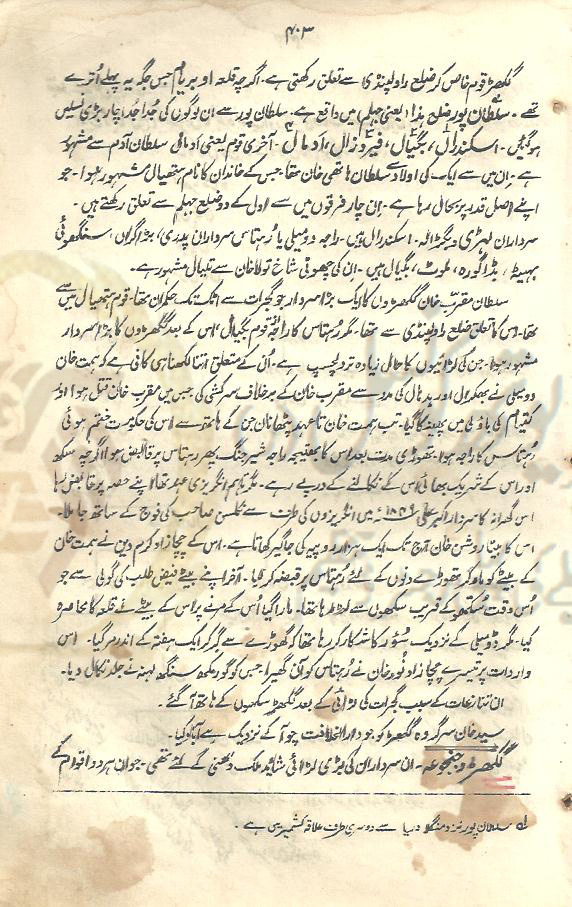 ۴۰۳
گکھڑ قوم خاص کر ضلع راولپنڈی سے تعلق رکھتی ہے۔ اگرچہ قلعہ اوبریام جس جگہ یہ پہلے اُترے
تھے۔ سلطان پور ضلع ہذا یعنی جہلم میں واقع ہے۔ سلطان پور سے ان لوگوں کی جُدا جُدا چار بڑی نسلیں
ہوگئیں۔ اسکندرال، بگیال، فیروزال، ادمال۔ آخری قوم یعنی ادمال سلطان آدم سے مشہور
ہے۔ اِن میں سے ایک کی اولاد سے سلطان ہاتھی خان تھا۔ جس کے خاندان کا نام ہتھیال مشہور ہوا۔ جو
اپنے اصل قدر پر بحال رہا ہے۔ اِن چار فرقوں میں سے اول کے دو ضلع جہلم سے تعلق رکھتے ہیں۔
سرداران لہڑی و بگڑالہ۔ اسکندرال ہیں۔ راجہ دومیلی یا رہتاس سرداران پدری، بڑاگراں، سنگھوئی
بہیٹہ، بڈاگورہ، لموٹ، بگیال ہیں۔ ان کی چھوٹی شاخ تولا خان سے تلیال مشہور ہے۔
سلطان مقرب خان گکھڑوں کا ایک بڑا سردار جو گجرات سے اٹک تک حکمران تھا۔ قوم ہتھیال میں سے
تھا۔ اس کا تعلق ضلع راولپنڈی سے تھا۔ مگر رہتاس کا راجہ قوم بگیال، اس کے بعد گکھڑوں کا بڑا سردار
مشہور ہوا۔ جن کی لڑائیوں کا حال زیادہ تر دلچسپ ہے۔ اُن کے متعلق اتنا لکھنا ہی کافی ہے کہ ہمت خان
دومیلی نے بھکرال اور پدہال کی مدد سے مقرب خان کے برخلاف سرکشی کی جس میں مقرب خان قتل ہوا اور
کی باؤلی میں پھینکا گیا۔ تب ہمت خان تا عہد پٹھانان جن کے ہاتھ سے اس کی حکومت ختم ہوئی
رہتاس کا راجہ ہوا۔ تھوڑی مدت بعد اس کا بھتیجہ راجہ شیر جنگ پھر رہتاس پر قابض ہوا اگرچہ سکھ
اور اس کے شریک بھائی اس کے نکالنے کے درپے رہے۔ مگر تاہم انگریزی عہد تھا اپنے حصہ پر قابض رہا
اس گھرانہ کا سردار اکبر علی ۱۸۴۹ء میں انگریزوں کی طرف سے نکلسن صاحب کی فوج کے ساتھ جا ملا۔
اس کا بیٹا روشن خان آج تک ایک ہزار روپیہ کی جاگیر کھاتا ہے۔ اس کے چچازاد کرم دین نے ہمت خان
کے بیٹے کو مار کر تھوڑے دنوں کے لئے رہتاس پر قبضہ کر لیا۔ آخر اپنے بیٹے فیض طلب کی گولی سے جو
اُس وقت کے قریب سکھوں سے لڑ رہا تھا۔ مارا گیا اُس کے مرنے پر اس کے بیٹے نے قلعہ کا محاصرہ
کیا۔ مگر دومیلی کے نزدیک سُور کا شکار کر رہا تھا کہ گھوڑے سے گر کر ایک ہفتہ کے اندر مر گیا۔ اس
واردات پر تیسرے چچازاد نور خان نے رہتاس کو آن گھیرا۔ جس کو گورمکھ سنگھ لہنہ نے جلد نکال دیا۔
ان تنازعات کے سبب گجرات کی لڑائی کے بعد گکھڑ سکھوں کے ہاتھ آ گئے۔
سید خان سرگروہ گکھڑ کو جو دارالخلافت چوآ کے نزدیک ہے آباد کیا۔
گکھڑ و جنجوعہ۔ ان سرداران کی بڑی لڑائی شاید ملک دھنی کے لئے تھی۔ جو ان ہر دو اقوام کے
لہ سلطان پور نزد منگلا دریا سے دوسری طرف علاقہ کشمیر میں ہے۔